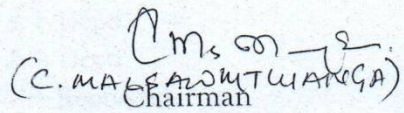 (C. MALSAWMTLUANGA)
Chairman